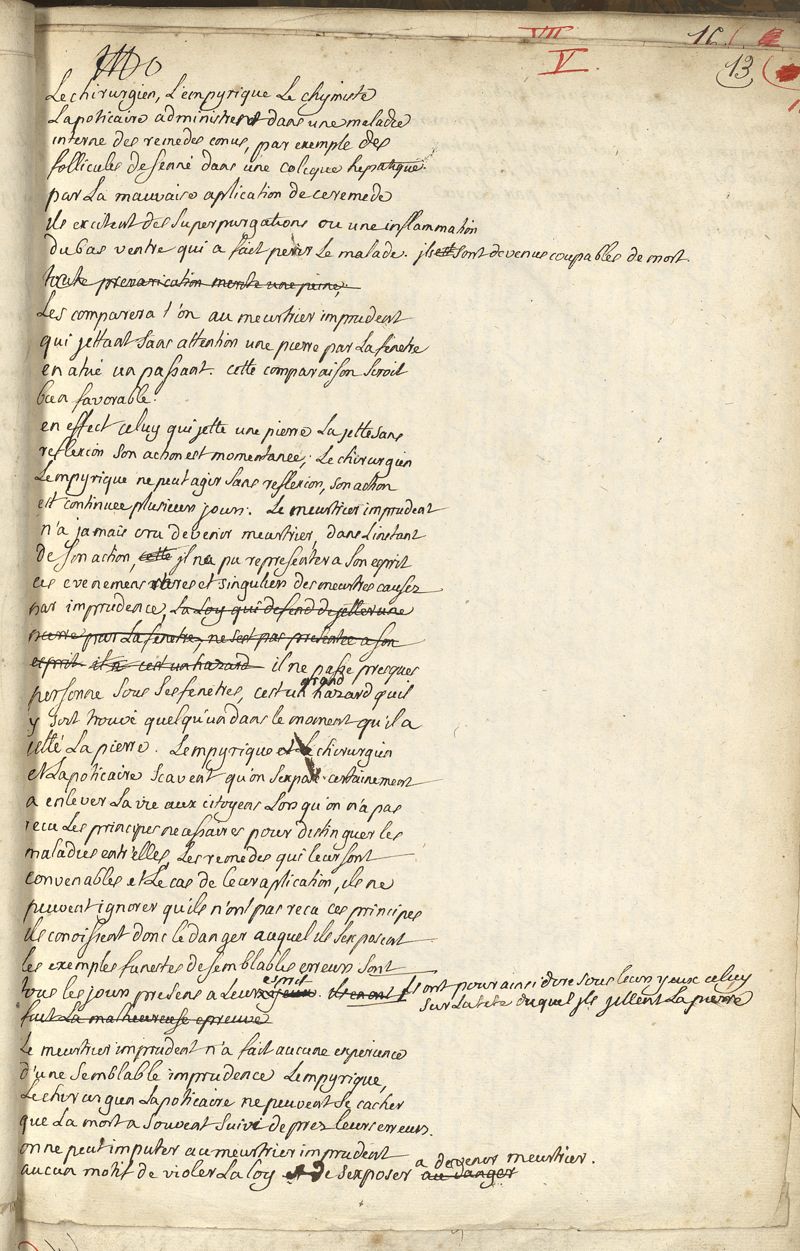 VII
V
16
13
Le chirurgien, L'empyrique Le chymiste
Lapoticaire administrent dans une maladie
interne des remedes conus, par exemple des
follicules de senné dans une colique hepatique.
par La mauvaise aplication de ce remede
ils excitent des superpurgations ou une inflammation
du bas ventre qui a fait perir Le malade. ils sont devenus coupables de mort.
toute prevarication merite une peine,
Les comparera t'on au meurtrier imprudent
qui jettant sans attention une pierre par La fenetre
en a tué un passant. cette comparaison seroit
bien favorable.
en effect celuy qui jette une pierre La jette sans
reflexion son action est momentanée, Le chirurgien
Lempyrique ne peut agir sans reflexion, son action
est continuee plusieurs jours. Le meurtrier imprudent
n'a jamais cru devenir meurtrier, dans L'instant
de son action, cette il n'a pu representer a son esprit
ces evenemens rares et singuliers des meurtres causez
par imprudence, La Loy qui defend de jetter une
pierre par La fenetre, ne s'est pas presentée a son
esprit il n c'est un hazard il ne passe presques
personne sous ses fenetres, c'est un grand hazard qu'il
y soit trouvé quelqu'un dans le moment qu'il a
jetté La pierre. Lempyrique et Le chirurgien
et Lapoticaire scavent qu'on s'expose certainement
a enlever La vie aux citoyens Lors qu'on n'a pas
recu Les principes necessaires pour distinguer les
maladies entr'elles, Les remedes qui leur sont
convenables et Le cas de leur aplication, ils ne
peuvent ignorer qu'ils n'ont pas recu ces principes
ils conoissent donc le danger auquel ils s'exposent
les exemples funestes de semblables erreurs sont
tous les jours presens a Leur esprit yeux. ils en ont Ils ont pour ainsi dire sous leurs yeux celuy
sur La tete duquel ils jettent La pierre
fait La malheureuse epreuve
Le meurtrier imprudent n'a fait aucune experience
d'une semblable imprudence Lempyrique,
Le chirurgien Lapoticaire ne peuvent se cacher
que La mort a souvent suivi de prez leurs erreurs.
on ne peut imputer au meurtrier imprudent
aucun motif de violer La Loy de s'exposer a devenir meurtrier.
au danger